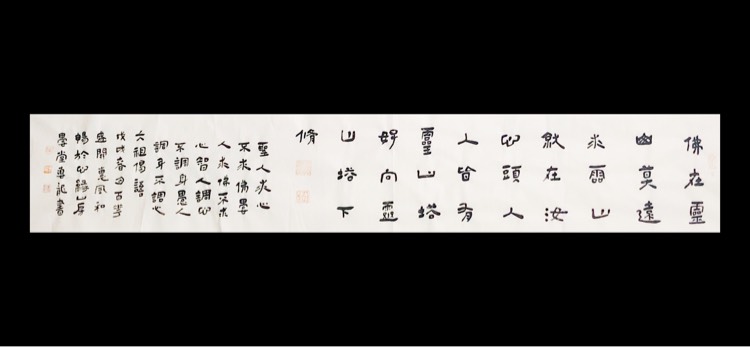 佛在靈
山莫遠
求靈山
就在汝
心頭人
人皆有
靈山塔
好向靈
山塔下
脩
聖人求心
不求佛愚
人求佛不求
心智人調心
不調身愚人
調身不調心
六祖偈語
戊戌春月百華
盛開惠風和
暢於心緣山房
堂書